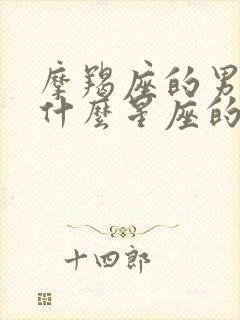 摩羯座的男
什麼星座的
十四郎